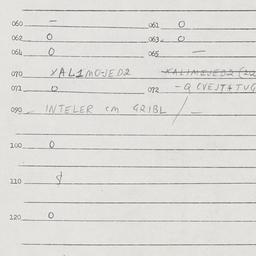 060 — 061 0
062 0 063 0
064 0 065 —
070 XAL1MOJED2
071 0 072
090 INTELER CM GRIBL / —
100 0
110
120 0